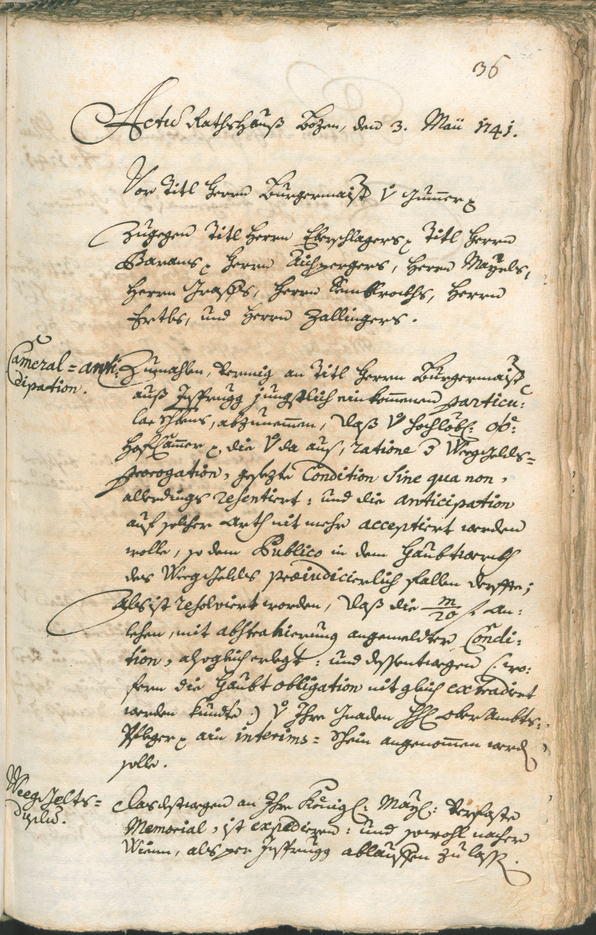 36
Actum Rathshauß Bozen, den 3. Maii 1741.
Vor Titl Herrn Burgermaister
Zugegen Titl Herrn Eberschlagers, Titl Herrn
Herrn Aichpergers, Herrn Mayrls,
Herrn Herrn Herrn
und Herrn Zallingers.
Cameral=anti-
cipation.
Zumahlen, an Titl Herrn Burgermaister
auß Insprugg jüngstlich einkommenen particu-
lar abzunemmen, daß Hochlöbl: Ob:
HofCammer die da aus, ratione Weggelds=
prorogation, gesezte Condition sine qua non,
allerdings resentiert: und die anticipation
auf solcher Arth nit mehr acceptiert werden
wolle, so dem Publico in dem Haubtwerch
des Weeggelds præiudicierlich fallen derffte;
Als ist resolviert worden, daß die m/20 f An-
lehen, mit abstrahierung angemeldter Condi-
tion, alsogleich erlegt: und dessentwegen (wo-
fern die Haubtobligation nit gleich extradiert
werden kundte) Ihro Gnaden ober Ambts-
Pfleger ain interims=Schein angenommen werden
solle.
Weeggelts=
Das deswegen an Ihro Königl: Mayt: verfaste
Memorial, ist expedieren: und sowohl nacher
Wienn, als per Insprugg ablauffen zu lassen.